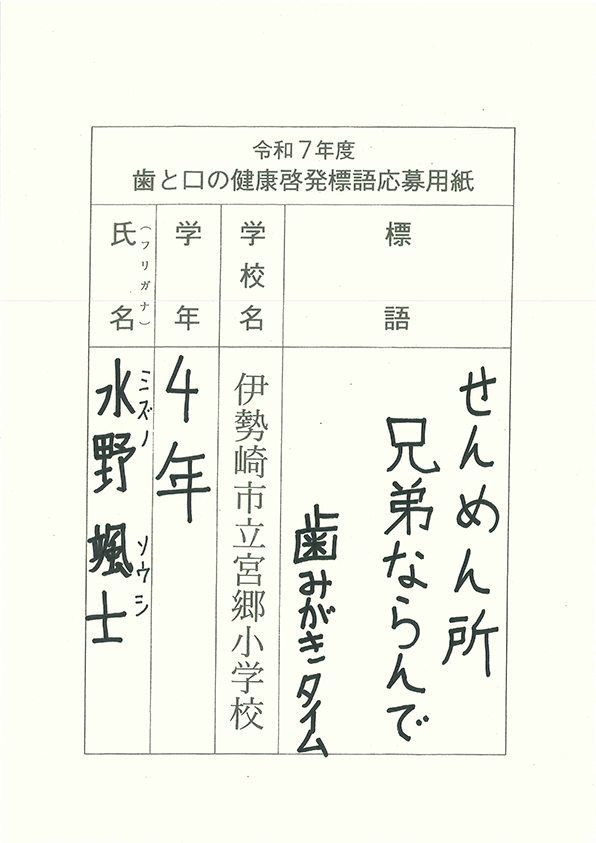 令和7年度
歯と口の健康啓発標語応募用紙
標語
せんめん所
兄弟ならんで
歯みがきタイム
学校名
伊勢崎市立宮郷小学校
学年
4年
氏名
(フリガナ)
水野 颯士
ミズノ ソウシ